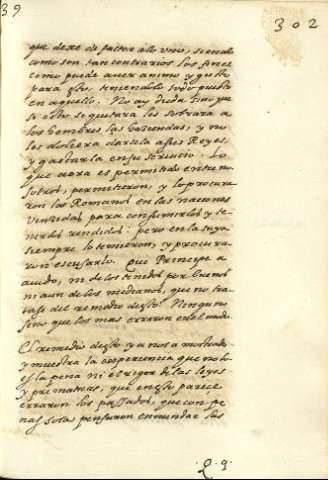 39
302
que dexe de faltar a lo uno, siendo
como son tan contrarios los fines
como puede aver animo y gusto
para esto, teniendolo todo puesto
en aquello. No ay duda sino que
si este se quitara les sobrara a
los hombres las haziendas, y no
les doliera darsela a sus Reyes,
y gastarla en su servicio. Lo
que aora es permitido entre no
sotros, permitieron, y lo procura
ron los Romanos en las naciones
vencidas para consumirlos y te
nerlos rendidos: pero en la suya
siempre lo temieron, y procura
ron escusarlo. Que Principe a
avido, ni de los tenidos por buenos
ni aun de los medianos, que no tra
tase del remedio desto? Ninguno
sino que los mas erraron en el modo.
El remedio desto ya nos a mostrado
y muestra la experiencia que no lo
es la pena ni el rigor de las leyes
y prematicas, que en esto parece
erraron los passados, que con pe
nas solas pensaron enmendar las
2.9.